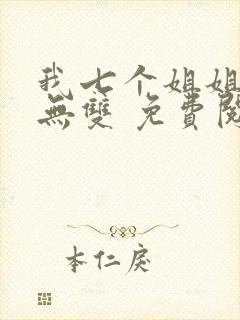 我七个姐姐
無雙 免費閱
本仁戾